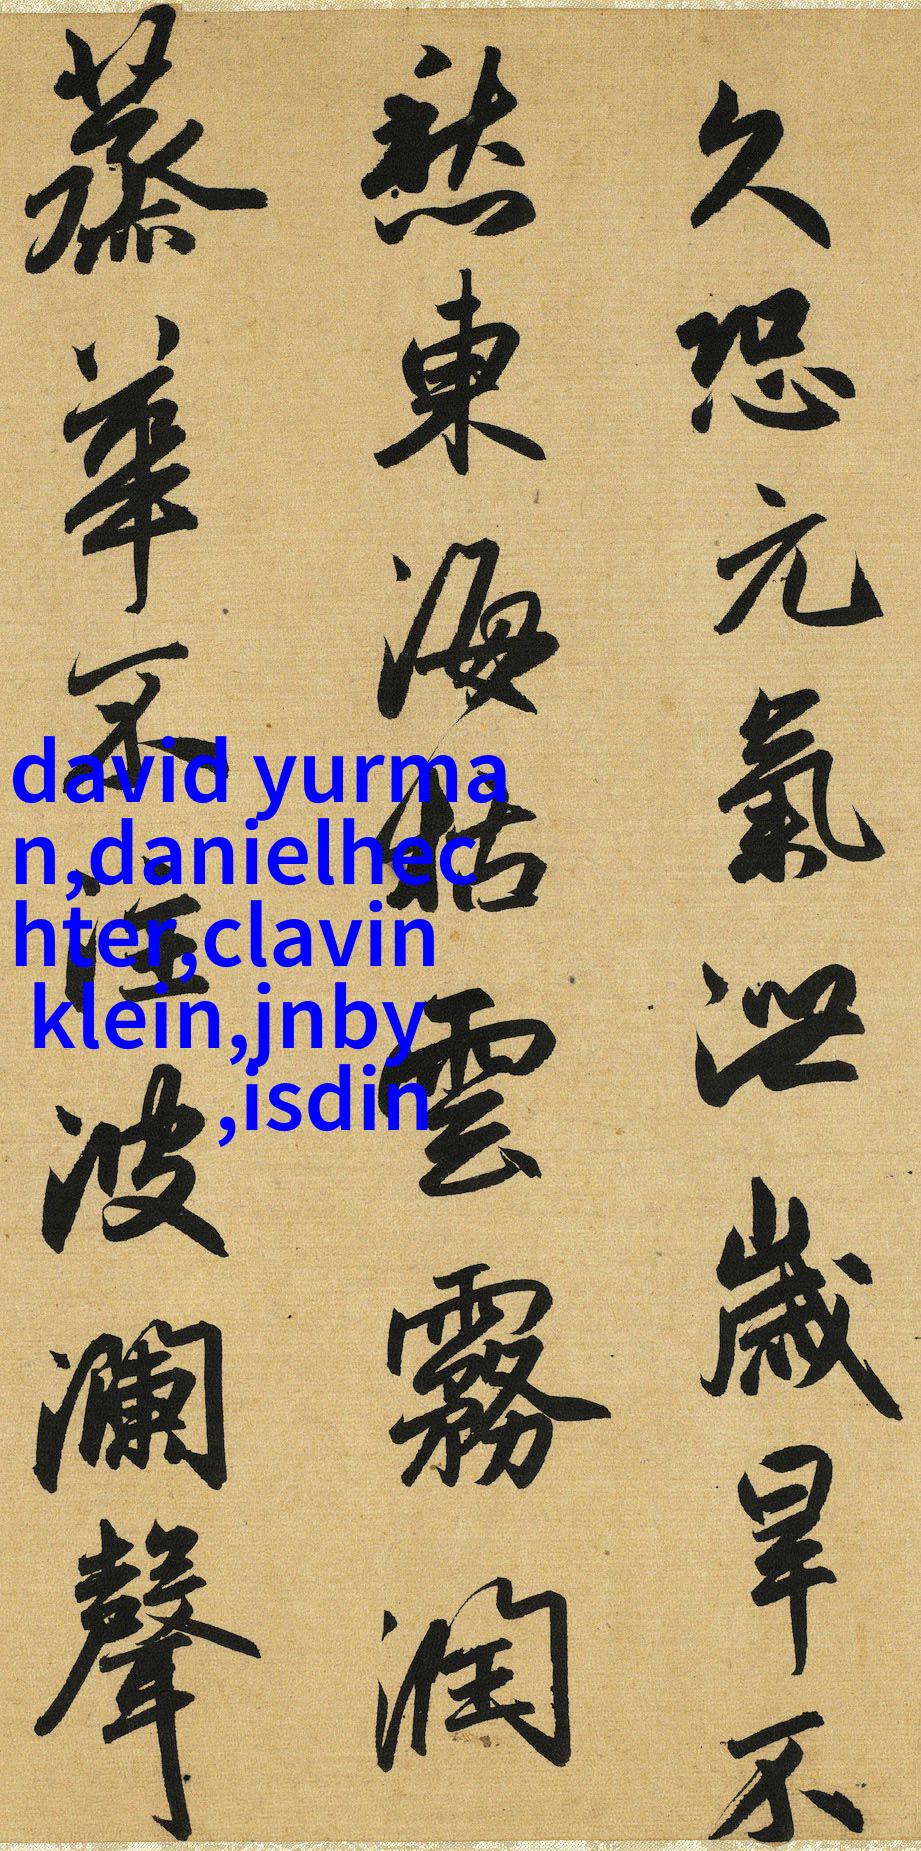 久恐元氣泄歲旱不
愁東海枯雲霧潤
蒸華不注波瀾聲
david yurma
n,danielhec
hter,clavin
klein,jnby
,isdin